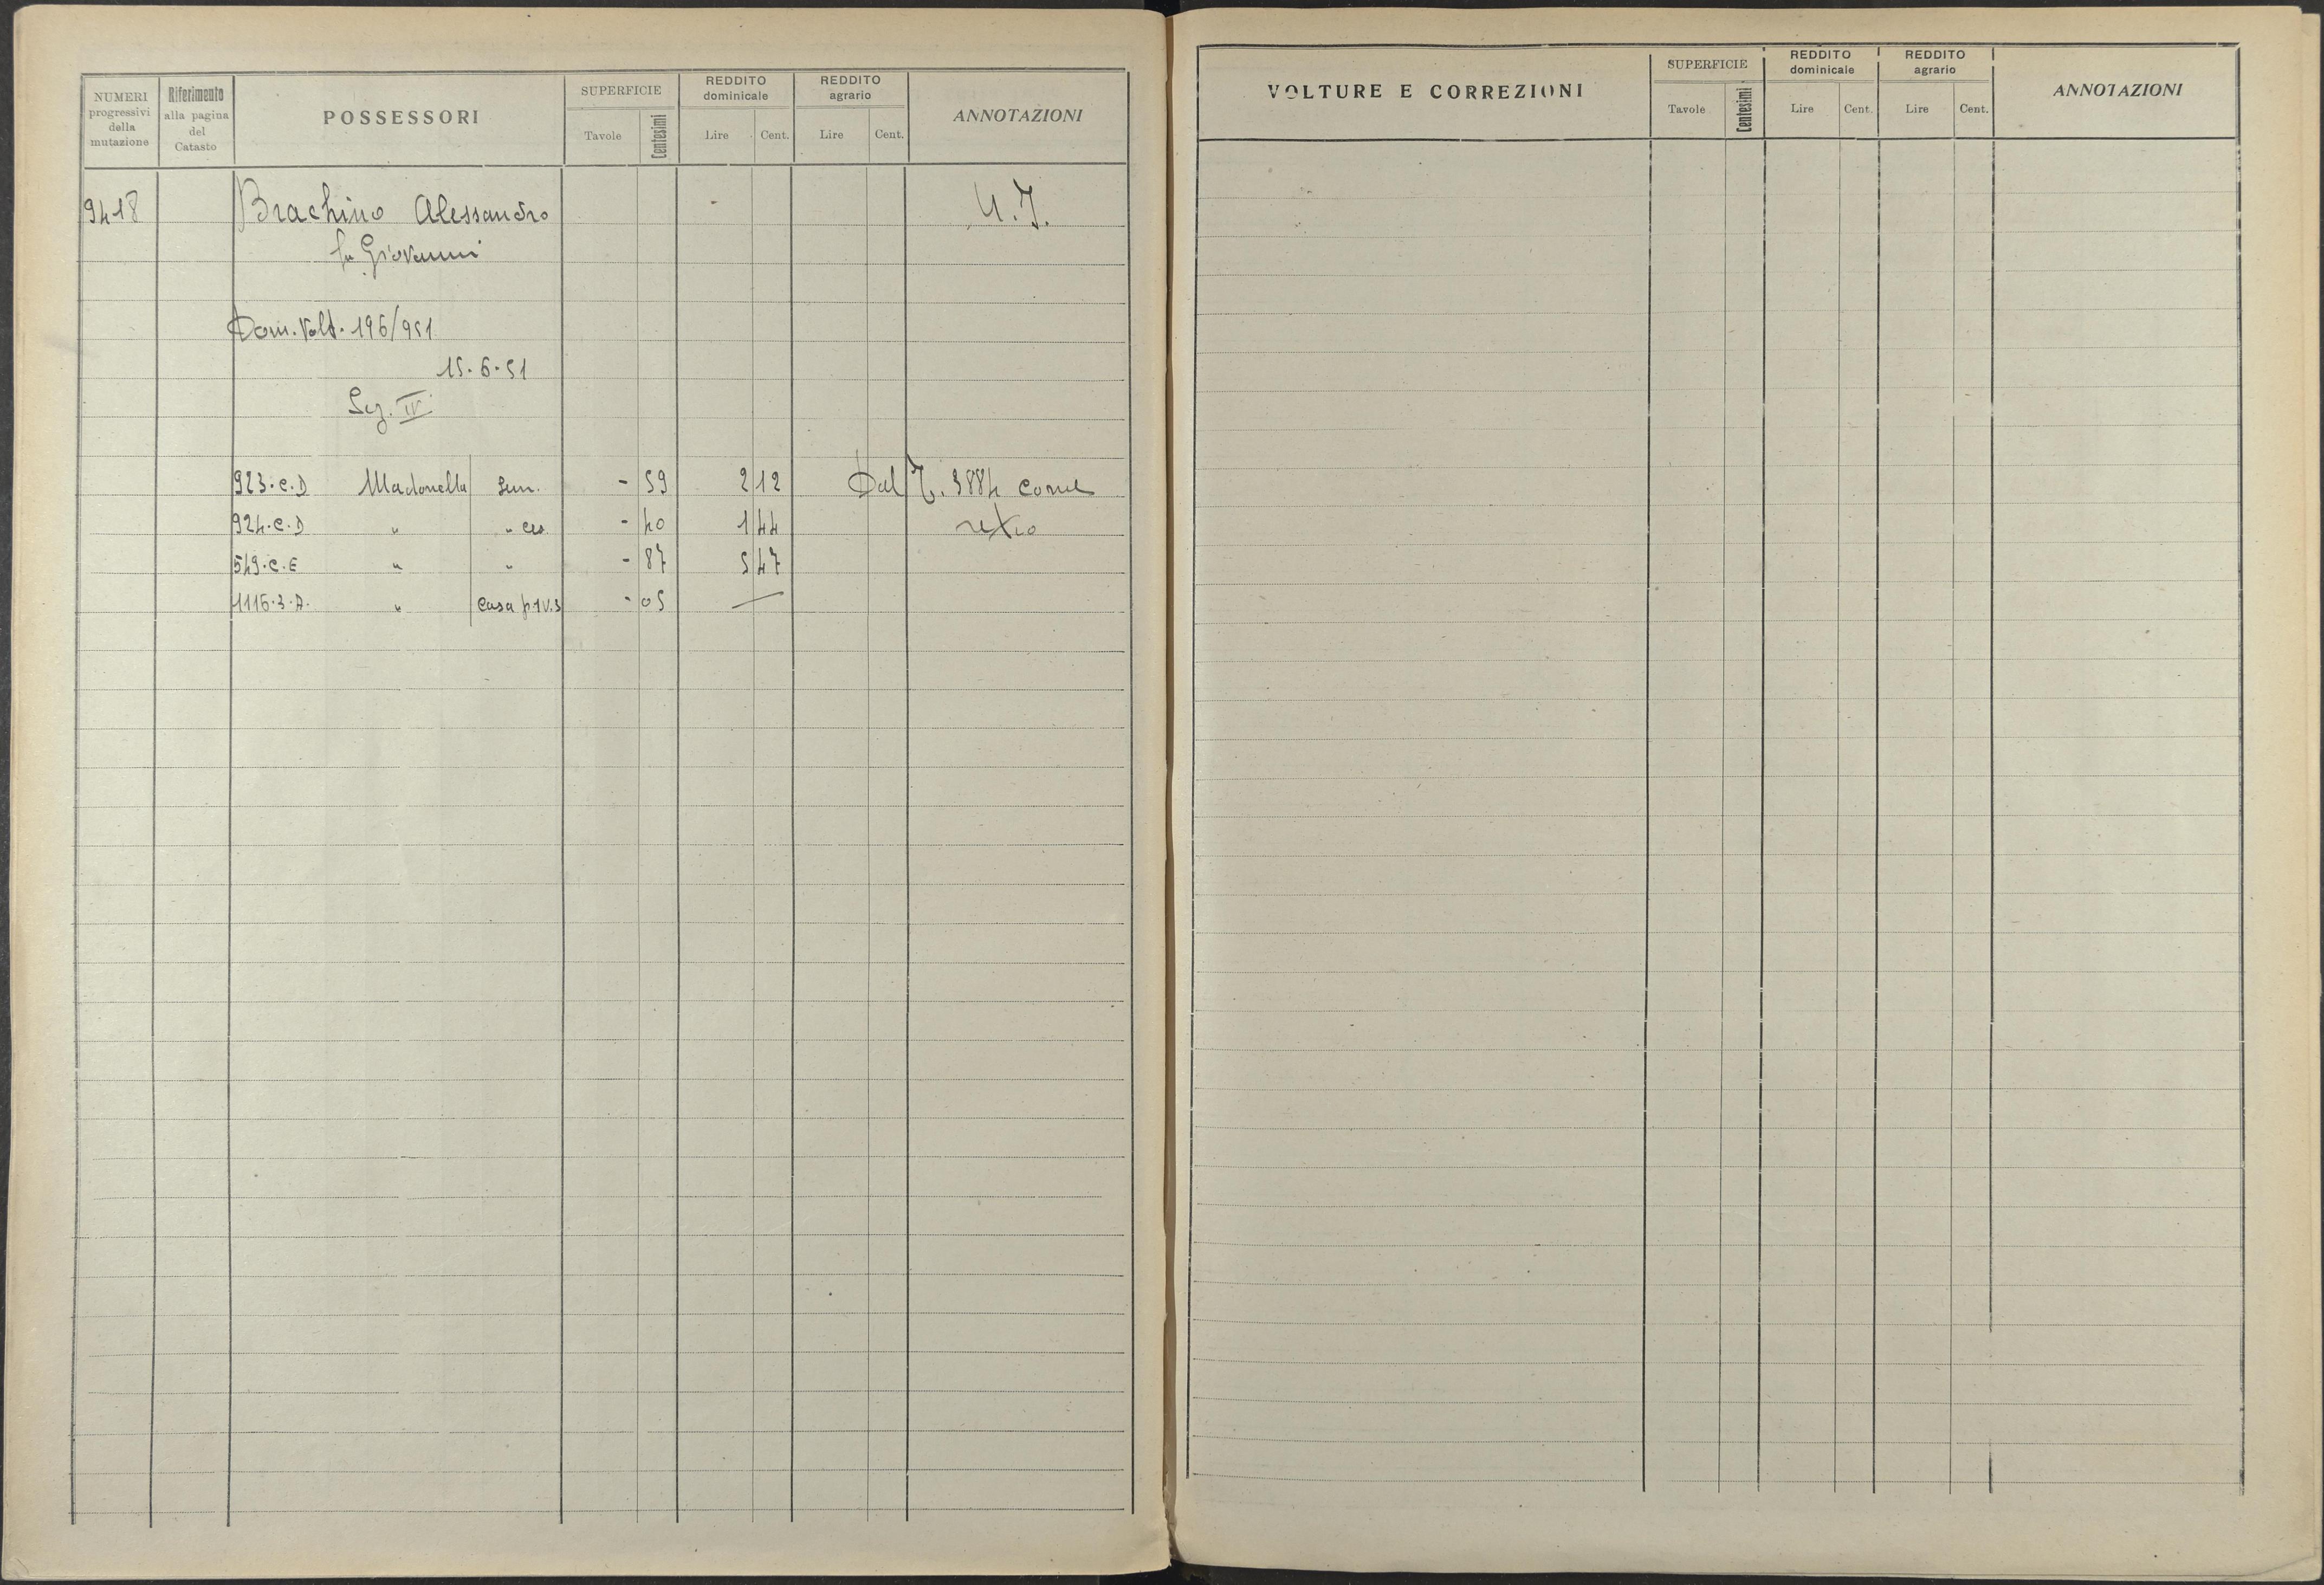 NUMERI progressivi della mutazione
Riferimento alla pagina del Catasto
POSSESSORI
SUPERFICIE
Tavole
Centesimi
REDDITO dominicale
Lire
Cent.
REDDITO agrario
Lire
Cent.
ANNOTAZIONI
9418 Brachino Alessandro U.I.
fu Giovanni
Dom. Volt. 196/951
15.6.51
Sez. IV
923.C.D Madonella Sem. - 59 2 12 Dal T. 3884 come
924.C.D " " - 40 1 44 retro
549.C.E " " - 87 5 47
1116.3.A. " Casa p1 V.3 - 05 —
VOLTURE E CORREZIONI
SUPERFICIE
Tavole
Centesimi
REDDITO dominicale
Lire
Cent.
REDDITO agrario
Lire
Cent.
ANNOTAZIONI